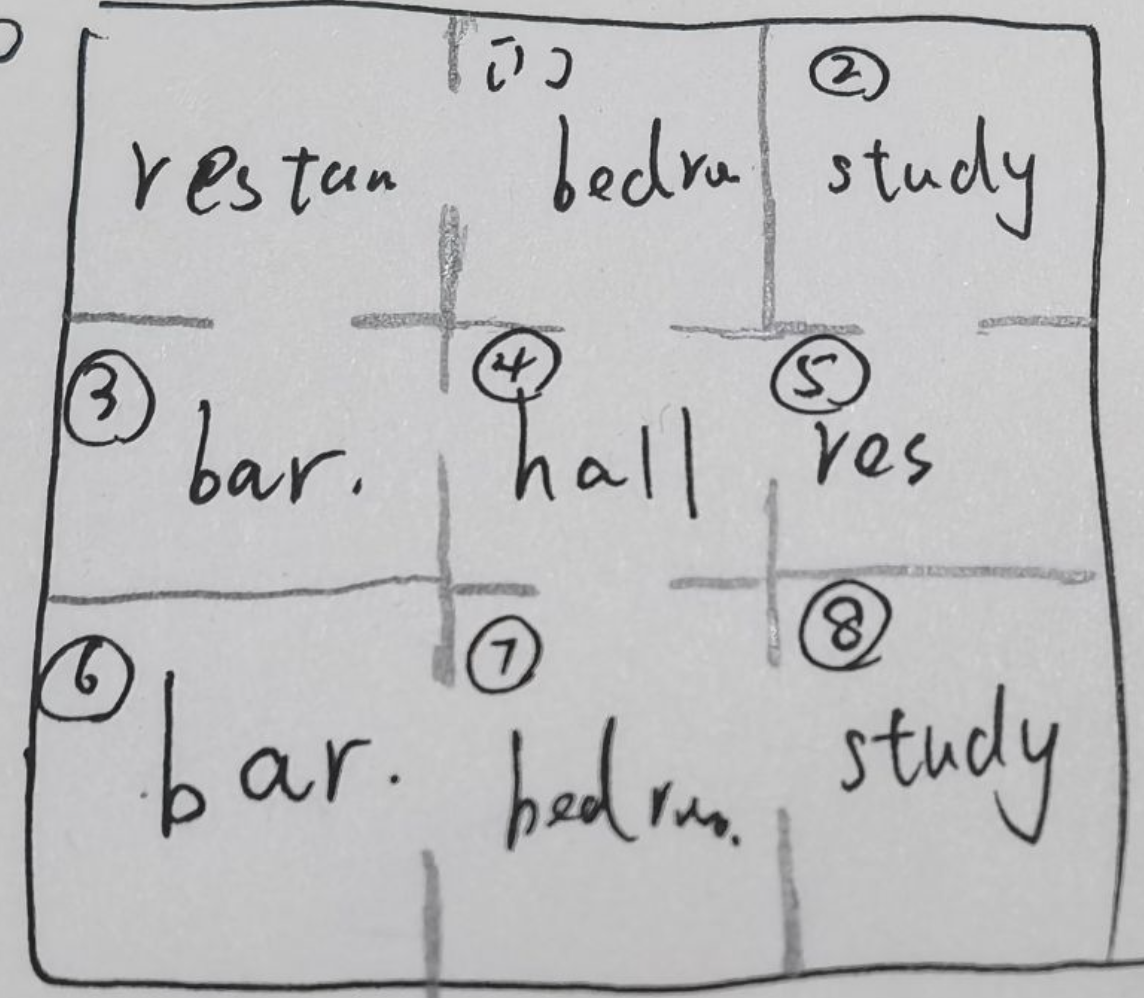 restau
① bedrm
② study
③ bar.
④ hall
⑤ res
⑥ bar.
⑦ bedrm.
⑧ study